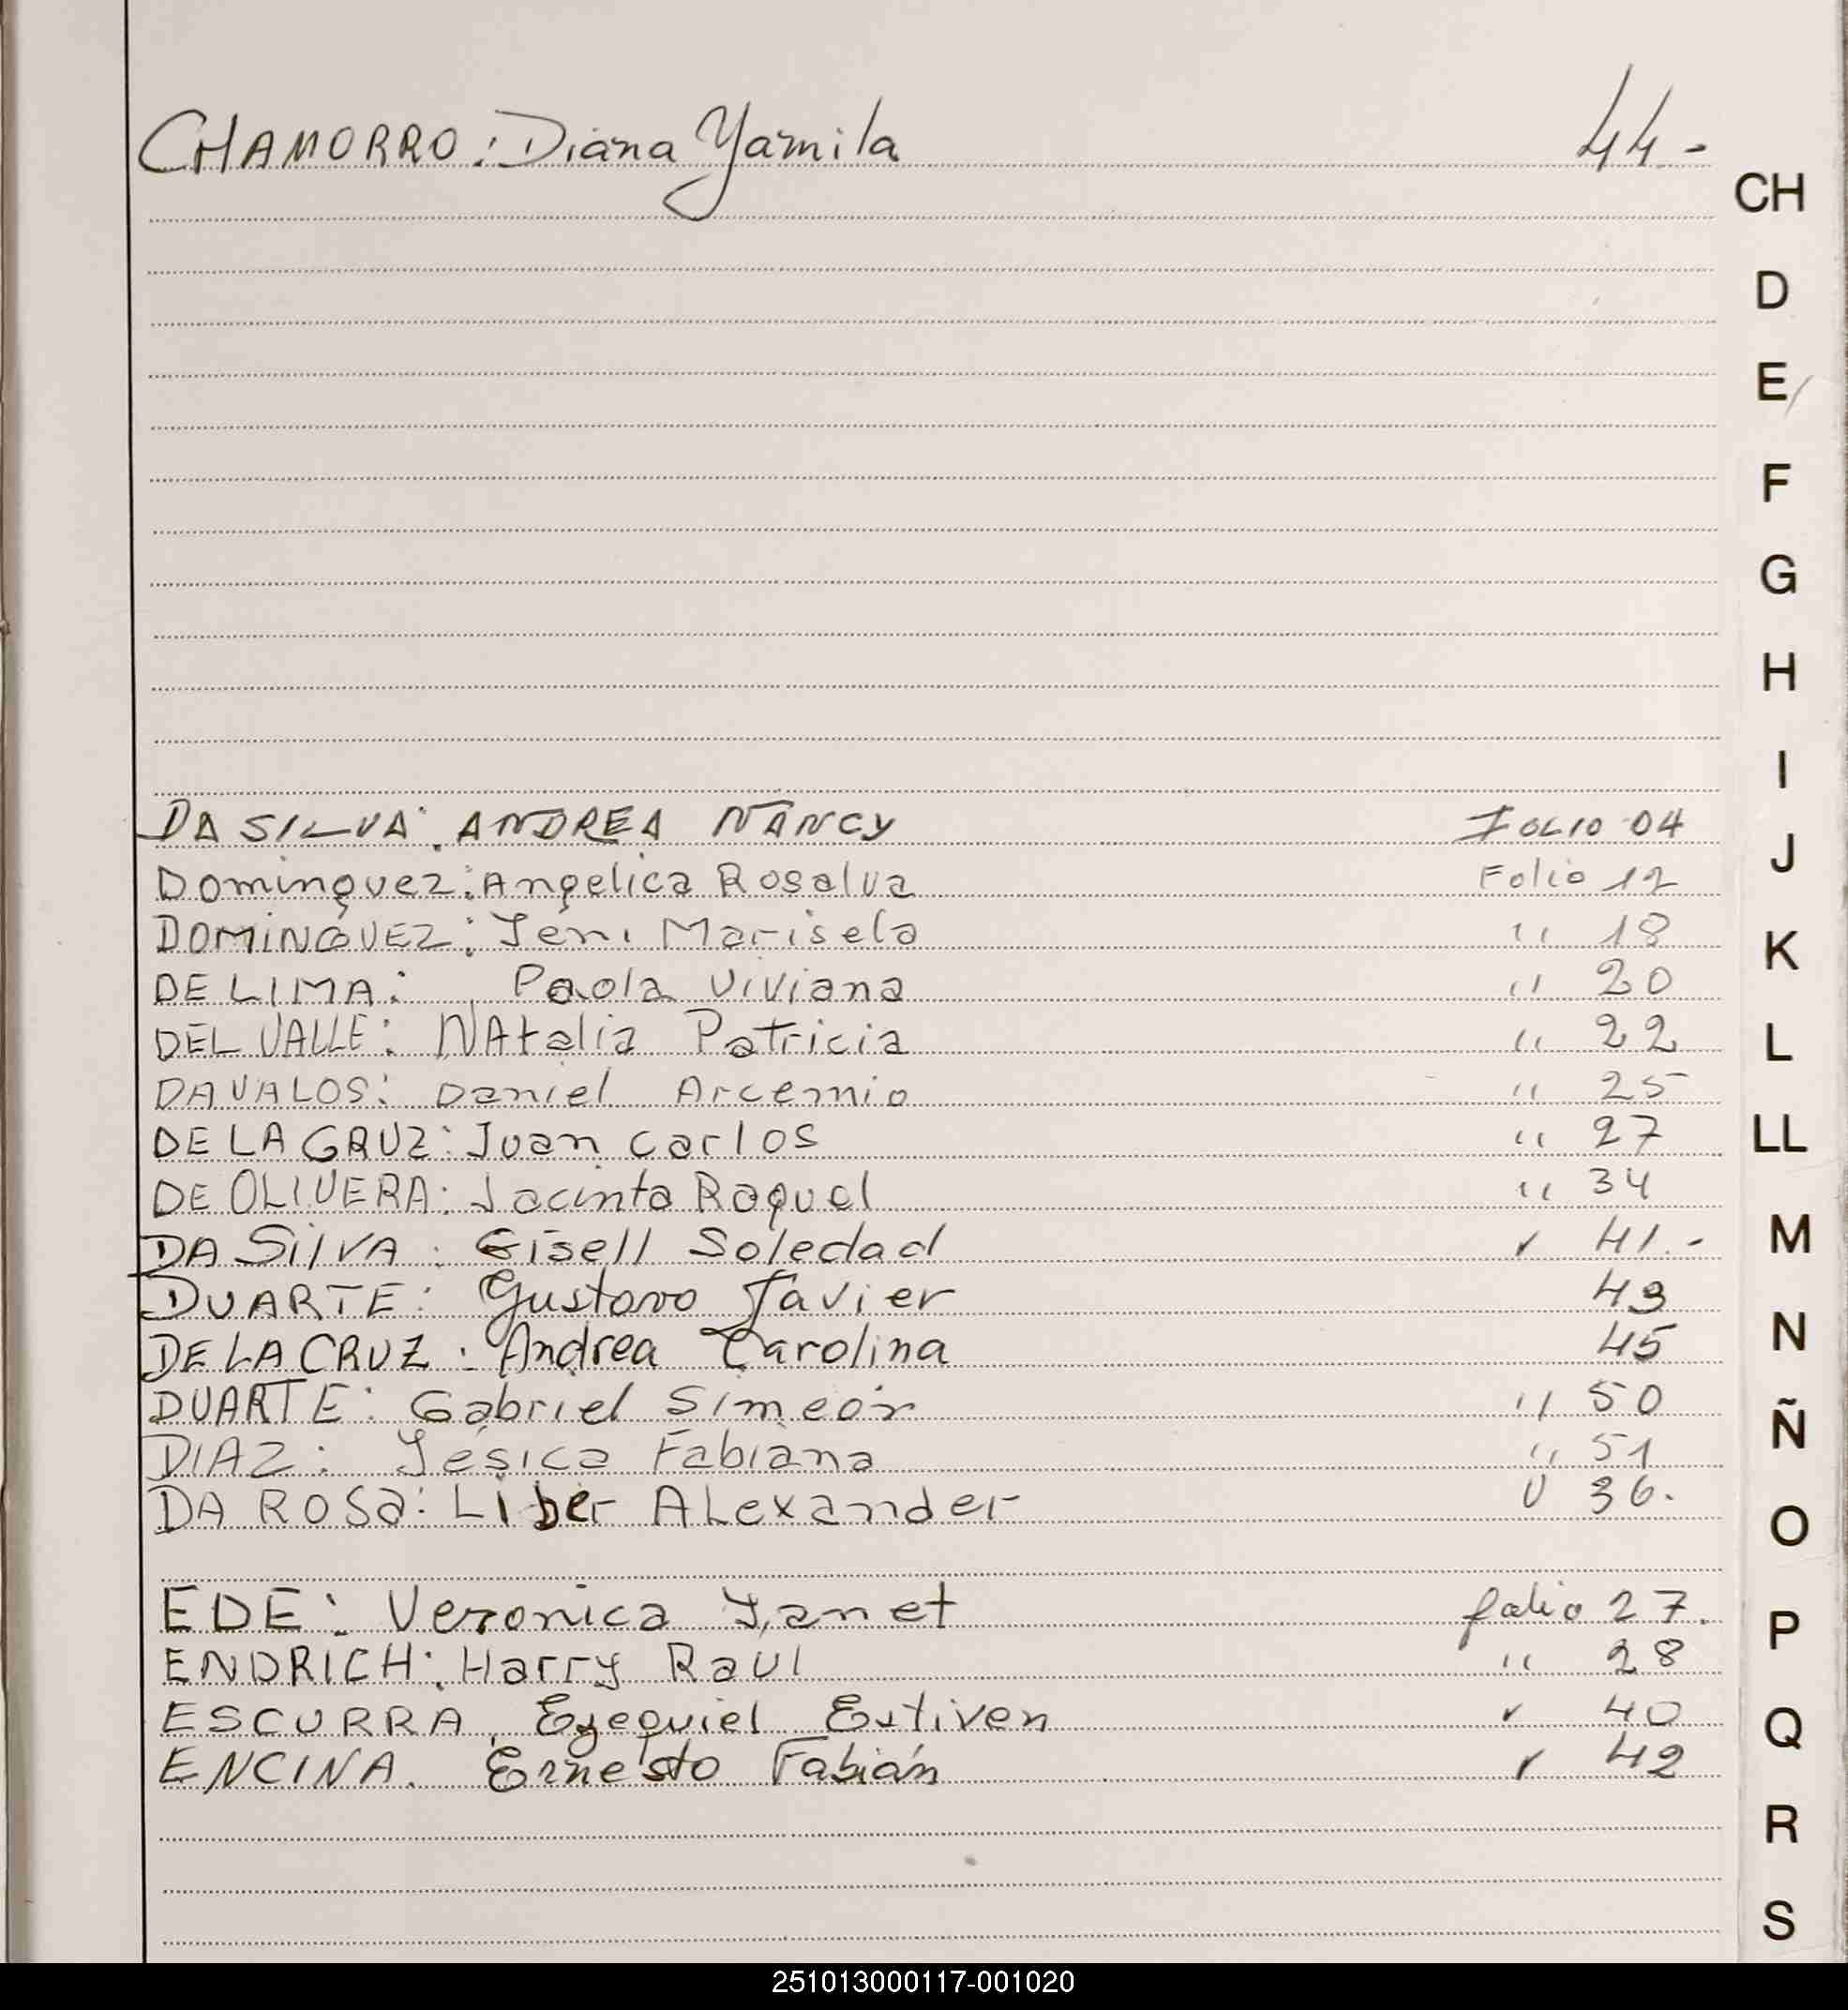 CHAMORRO: Diana Yamila 44.-
CH
D
E
F
G
H
I
DA SILVA: ANDREA NANCY FOLIO 04
J
Dominguez: Angelica Rosalva Folio 12
DOMINGUEZ: Jeni Marisela " 18
K
DE LIMA: Paola Viviana " 20
DEL VALLE: NAtalia Patricia " 22
L
DAVALOS: Daniel Arcemio " 25
DE LA CRUZ: Juan carlos " 27
LL
DE OLIVERA: Jacinta Raquel " 34
DA SilVA: Gisell Soledad " 41.-
M
DUARTE: Gustavo Javier 43
N
DE LA CRUZ: Andrea Carolina 45
DUARTE: Gabriel Simeón " 50
Ñ
DIAZ: Jésica Fabiana " 51
DA ROSa: Liber ALexander " 36.
O
EDE: Veronica Yanet folio 27.
P
ENDRICH: Harry Raul " 28
ESCURRA. Ezequiel Estiven " 40
Q
ENCINA. Ernesto Fabián " 42
R
S
251013000117-001020